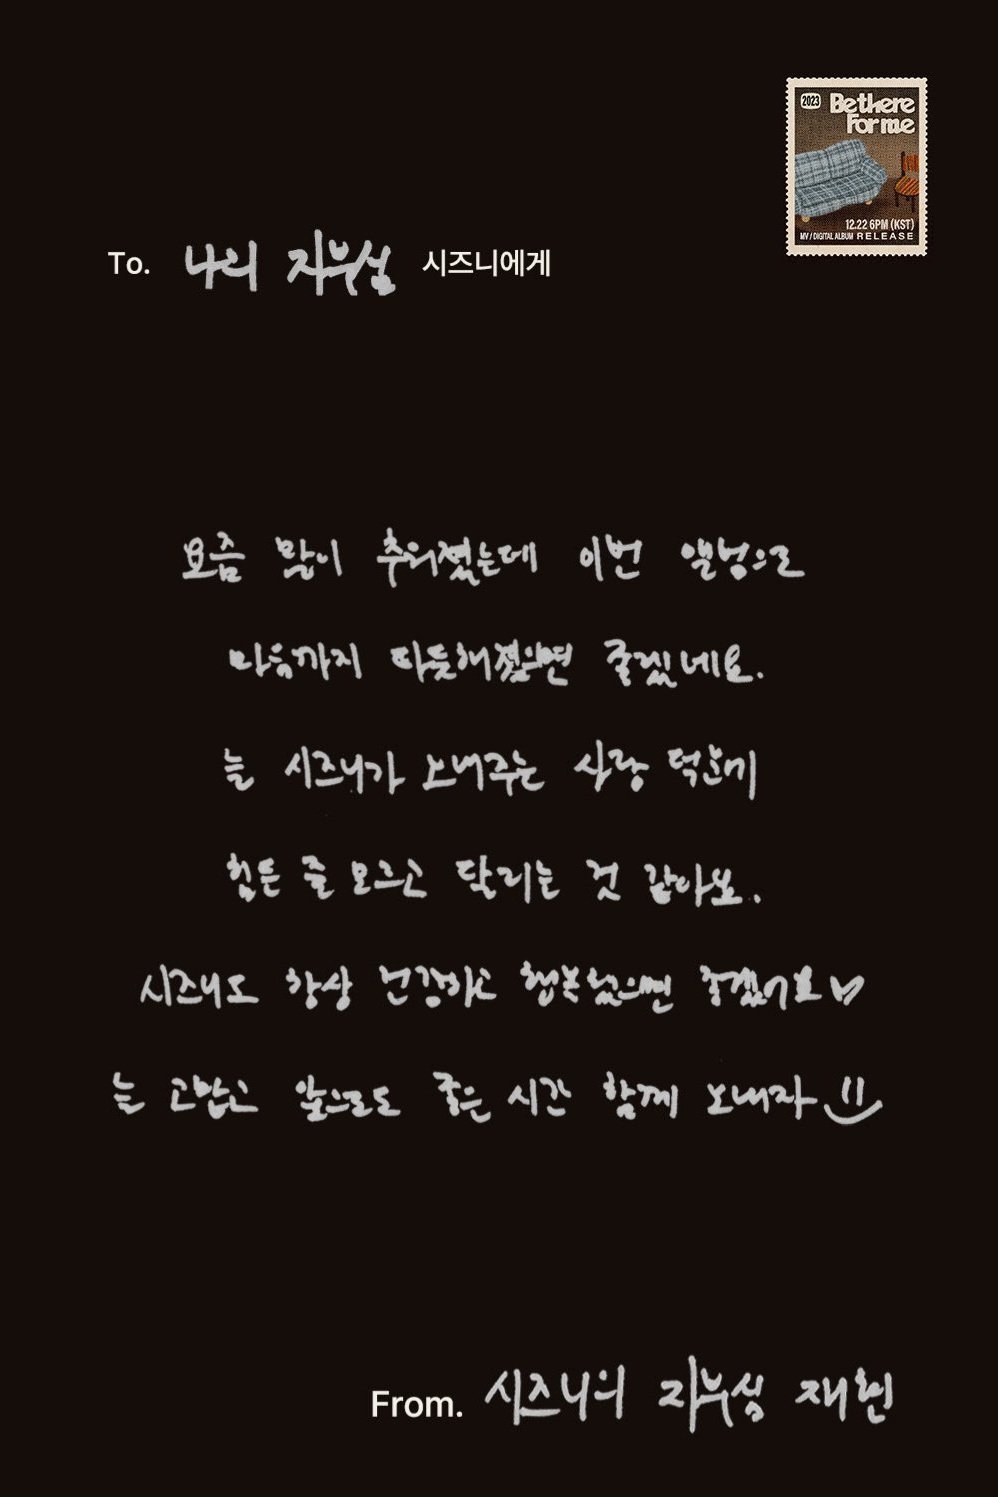 2023 Be there
For me
12.22 6PM (KST)
MV / DIGITAL ALBUM RELEASE
To. 나의 자부심 시즈니에게
요즘 많이 추워졌는데 이번 앨범으로
마음까지 따듯해졌으면 좋겠네요.
늘 시즈니가 보내주는 사랑 덕분에
힘든 줄 모르고 달리는 것 같아요.
시즈니도 항상 건강하고 행복했으면 좋겠어요♡
늘 고맙고 앞으로도 좋은 시간 함께 보내자 :)
From. 시즈니의 자부심 재현